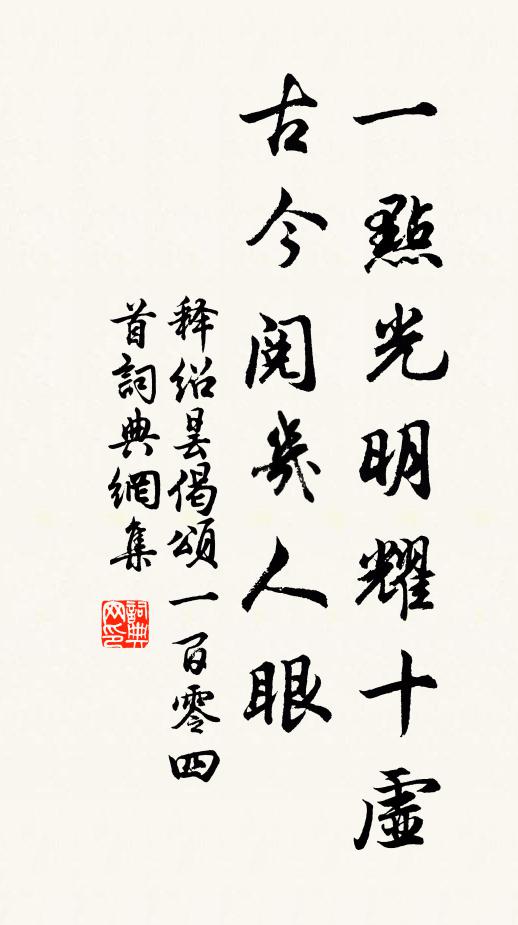 一點光明耀十虛
古今閱幾人眼
释绍曇偈頌一百零四
首詞典網集
詞典
网印